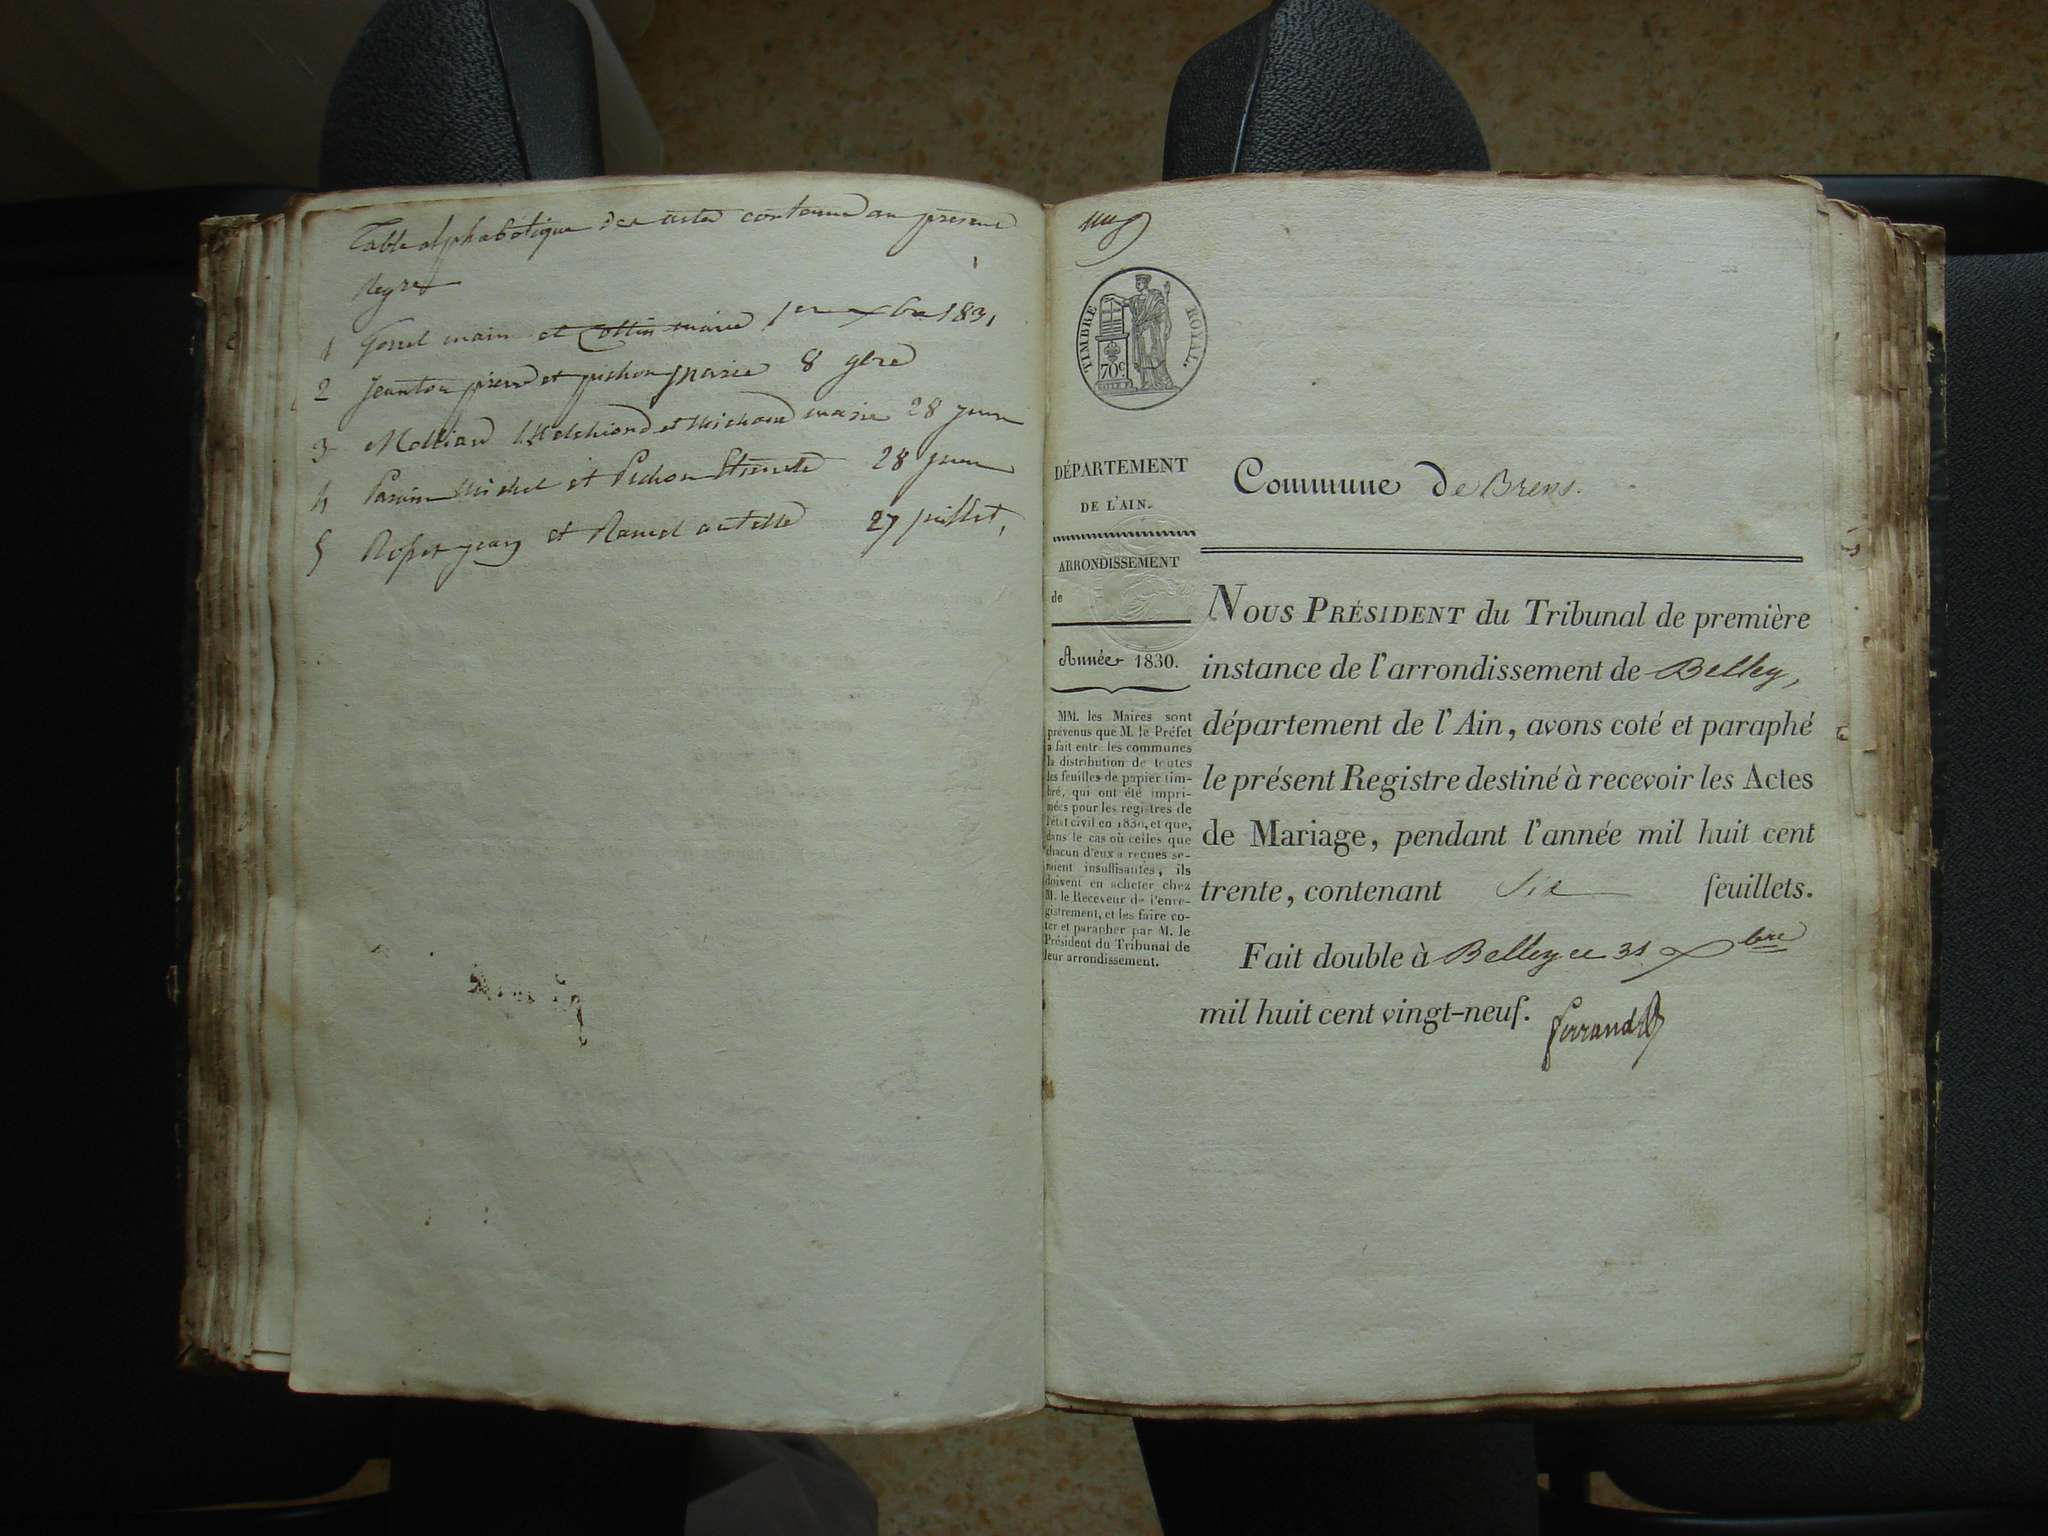 Table alphabétique des actes contenu au présent
Regre
1 et Collin marie 1er xbre 1831
2 Jeanton pierre et pichon marie 8 9bre
3 Mollian Melchiord et Michaud marie 28 juin
4 Michel et Pichon 28 juin
5 Rosset jean et 27 juillet,
TIMBRE ROYAL.
70c
DÉPARTEMENT
DE L'AIN.
ARRONDISSEMENT
de
Année 1830.
MM. les Maires sont
prévenus que M. le Préfet
a fait entre les communes
la distribution de toutes
les feuilles de papier tim-
bré, qui ont été impri-
mées pour les registres de
l'état civil en 1830, et que,
dans le cas où celles que
chacun d'eux a reçues se-
raient insuffisantes, ils
doivent en acheter chez
M. le Receveur de l'enre-
gistrement, et les faire co-
ter et parapher par M. le
Président du Tribunal de
leur arrondissement.
Commune de Brens.
NOUS PRÉSIDENT du Tribunal de première
instance de l'arrondissement de Belley,
département de l'Ain, avons coté et paraphé
le présent Registre destiné à recevoir les Actes
de Mariage, pendant l'année mil huit cent
trente, contenant Six feuillets.
Fait double à Belley ce 31 xbre
mil huit cent vingt-neuf.